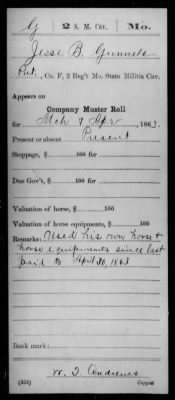 G 2 S. M. Cav. Mo.
Jesse B. Gunnels
Pvt., Co. F, 2 Reg't Mo. State Militia Cav.
Appears on
Company Muster Roll
for Mch & Apr, 1863.
Present or absent Present
Stoppage, $ 100 for
Due Gov't, $ 100 for
Valuation of horse, $ 100
Valuation of horse equipments, $ 100
Remarks: Used his own horse &
horse equipments since last
paid April 30, 1863
Book mark:
W. T. Andrews
(858) Copyist.